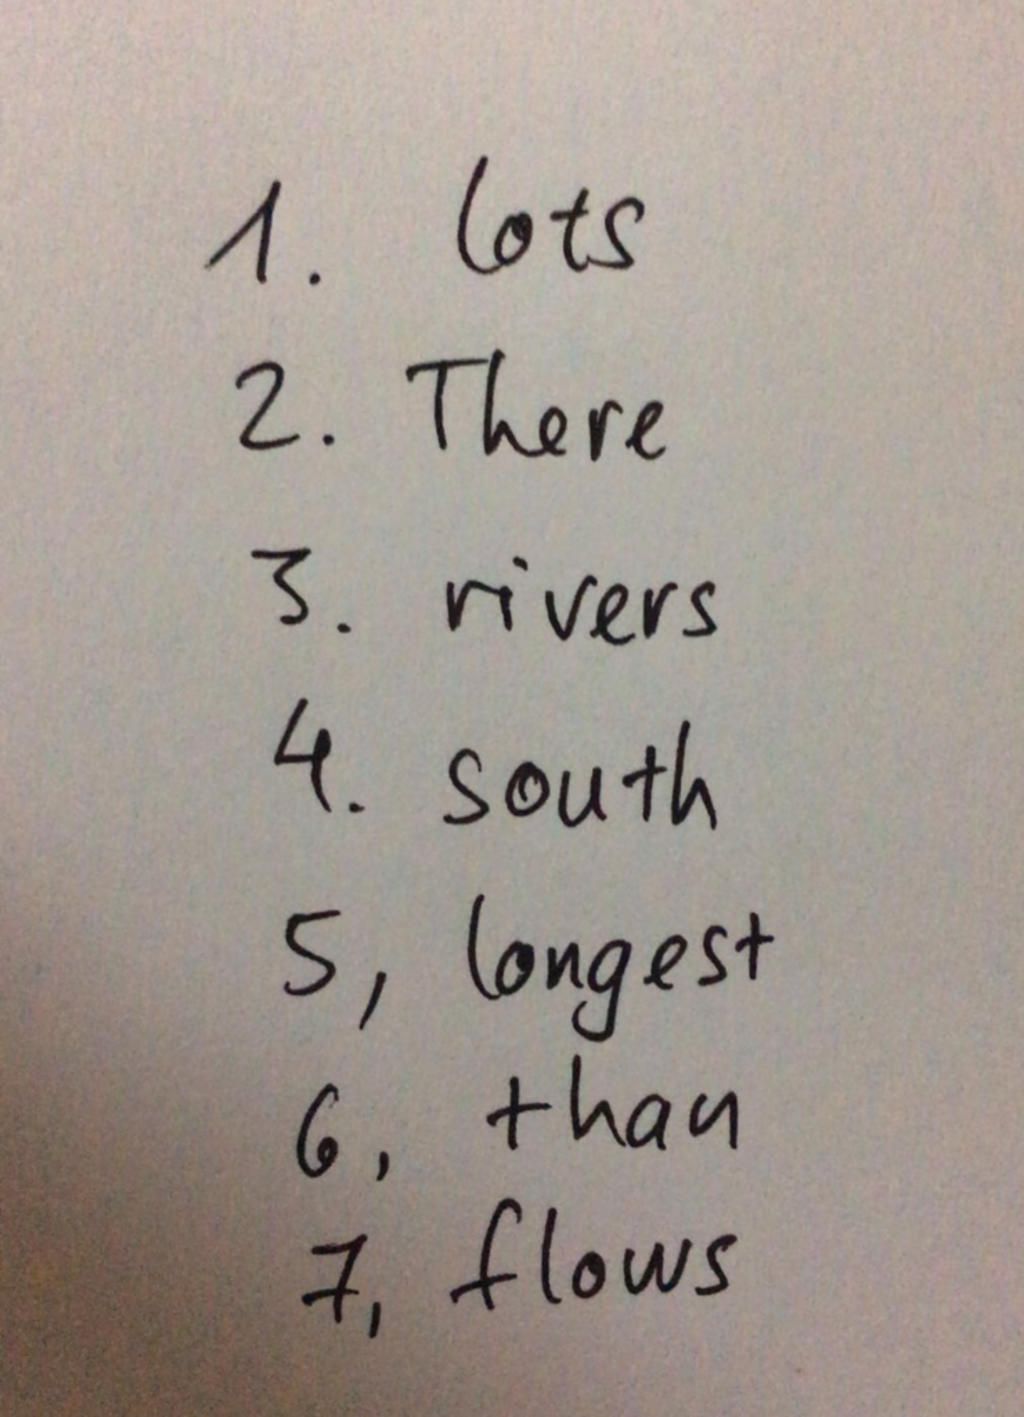 1. lots
2. There
3. rivers
4. south
5, longest
6, than
7, flows